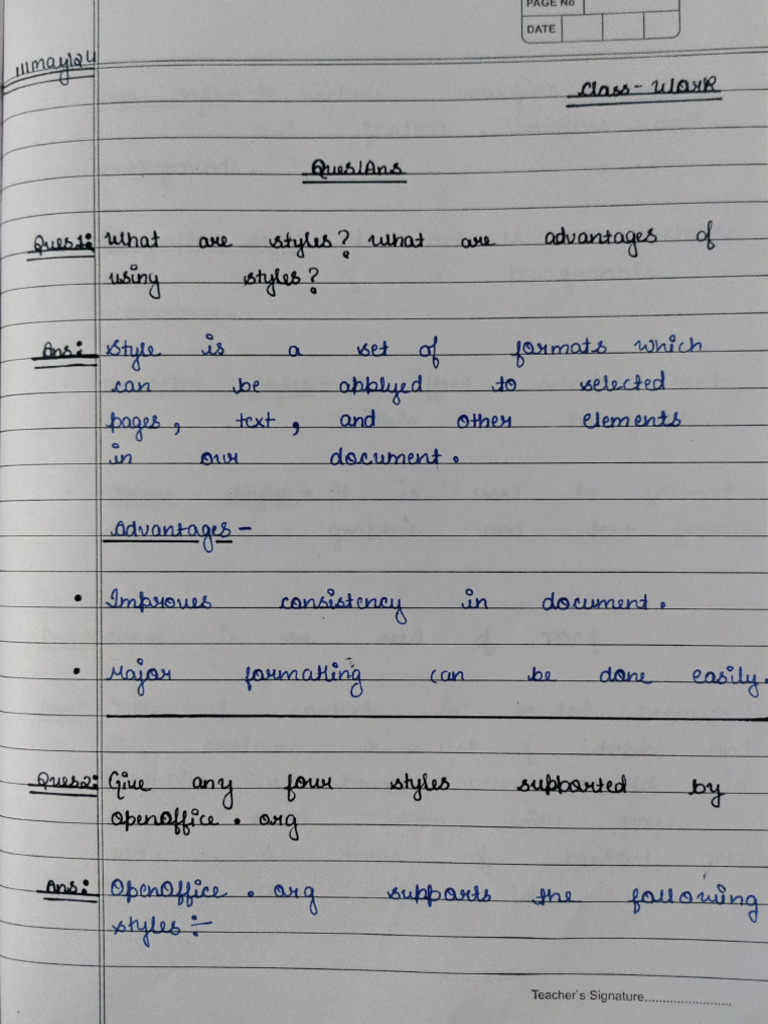 PAGE No
DATE
111may124
Class-Work
Ques/Ans
Ques1: What are styles? What are advantages of
using styles?
Ans: Style is a set of formats which
can be applyed to selected
pages, text, and other elements
in our document.
Advantages -
• Improves consistency in document.
• Major formatting can be done easily.
Ques2: Give any four styles supported by
OpenOffice.org
Ans: OpenOffice.org supports the following
styles:-
Teacher's Signature........................